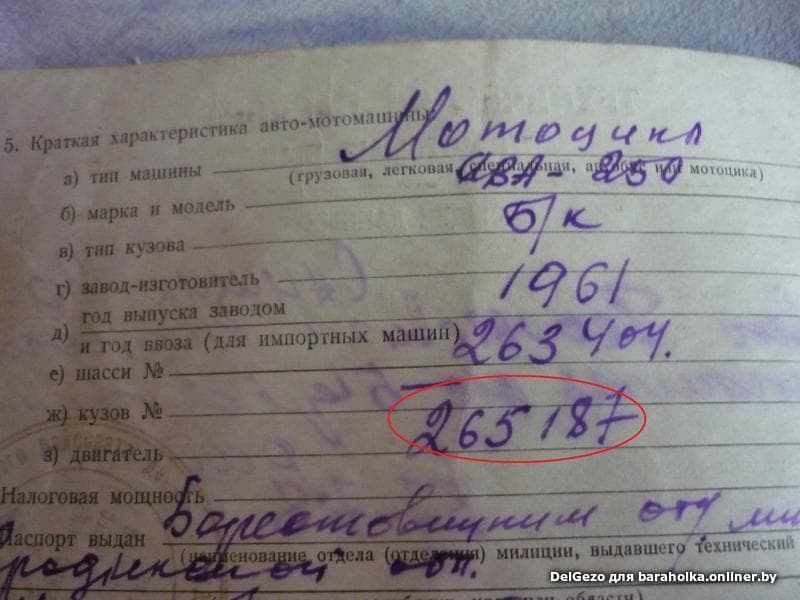 5. Краткая характеристика авто-мотомашины
Мотоцикл
а) тип машины
(грузовая, легковая, специальная, автобус или мотоцикл)
б) марка и модель ява-250
в) тип кузова б/к
г) завод-изготовитель
д) год выпуска заводом 1961
и год ввоза (для импортных машин)
е) шасси № 263404.
ж) кузов № —
з) двигатель 265187
Налоговая мощность
Паспорт выдан
(наименование отдела (отделения) милиции, выдавшего технический
области)
DelGezo для baraholka.onliner.by